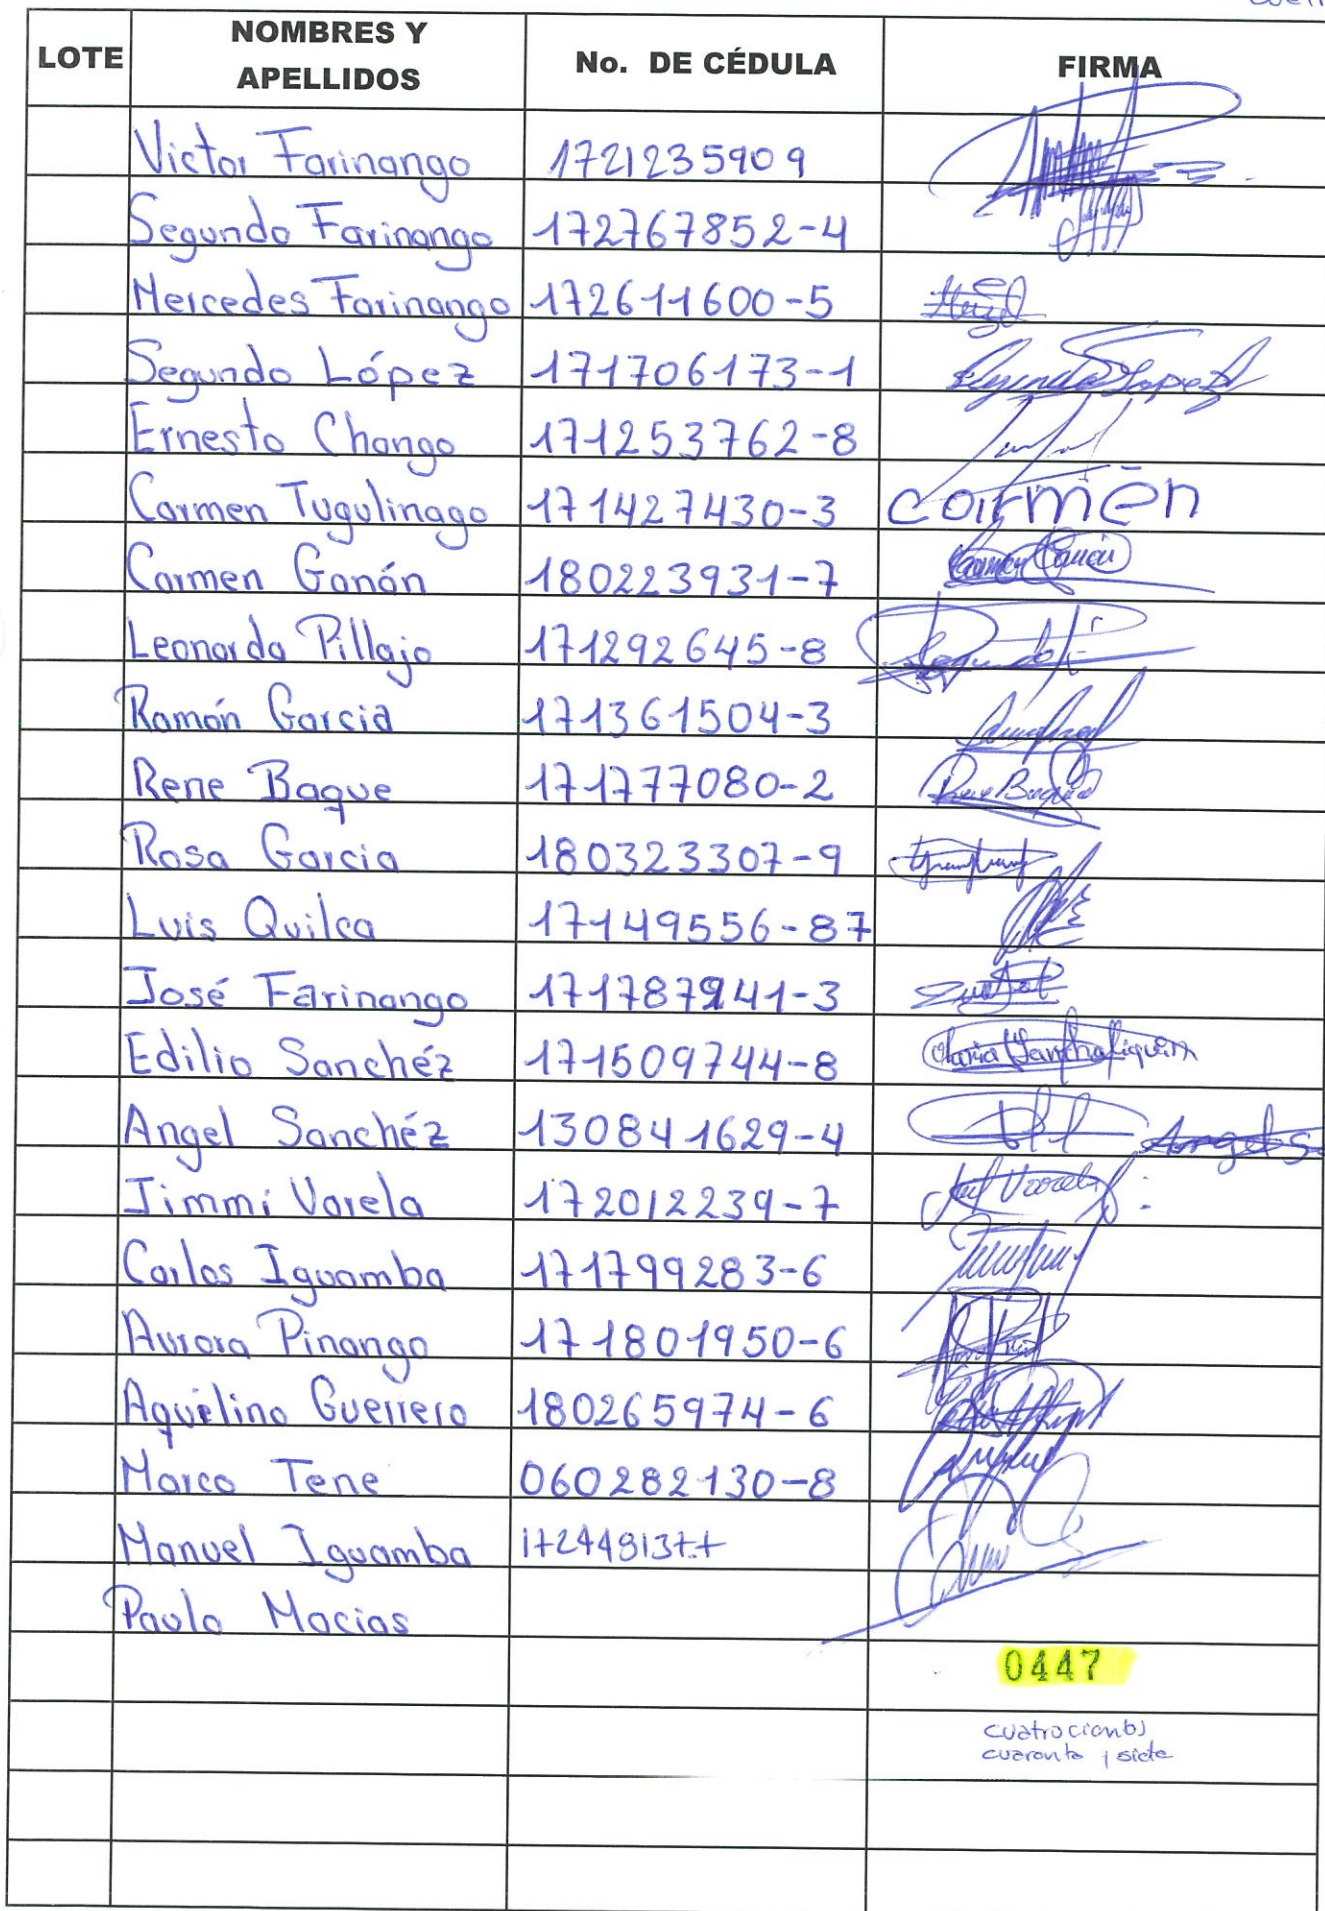 LOTE NOMBRES Y APELLIDOS No. DE CÉDULA FIRMA
Victor Farinango 1721235909
Segundo Farinango 172767852-4
Mercedes Farinango 172611600-5
Segundo López 171706173-1 Segundo Lopez
Ernesto Chango 171253762-8
Carmen Tugulinago 171427430-3 Carmen
Carmen Ganán 180223931-7
Leonardo Pillajo 171292645-8
Ramón Garcia 171361504-3
Rene Baque 171777080-2 Rene Baque
Rosa Garcia 180323307-9
Luis Quilca 17149556-87
José Farinango 171787941-3
Edilio Sanchéz 171509744-8
Angel Sanchéz 130841629-4 Angel S
Jimmi Varela 172012239-7 Varela
Carlos Iguamba 171799283-6
Aurora Pinango 171801950-6
Aquilino Guerrero 180265974-6
Marco Tene 060282130-8
Manuel Iguamba 1724481377
Paulo Macias
0447
cuatrocientos
cuarenta y siete